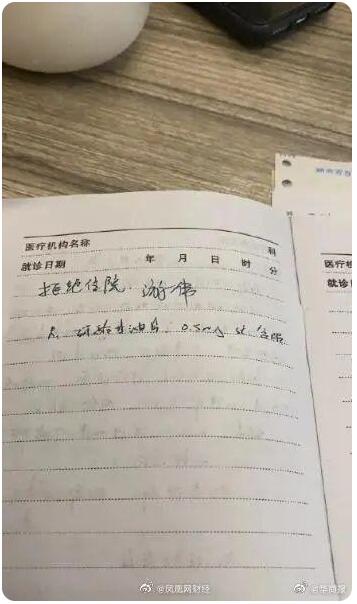 医疗机构名称 科
就诊日期 年 月 日 时 分
拒绝住院. 游伟
硝酸甘油片 0.5mg st 含服
医疗
就诊
@凤凰网财经
@华商报